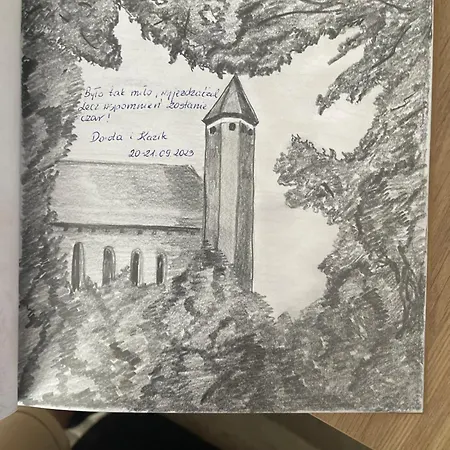 Było tak miło, wyjeżdżać żal
lecz wspomnień zostanie
czar!
Dorota i Kazik
20-21.09.2023